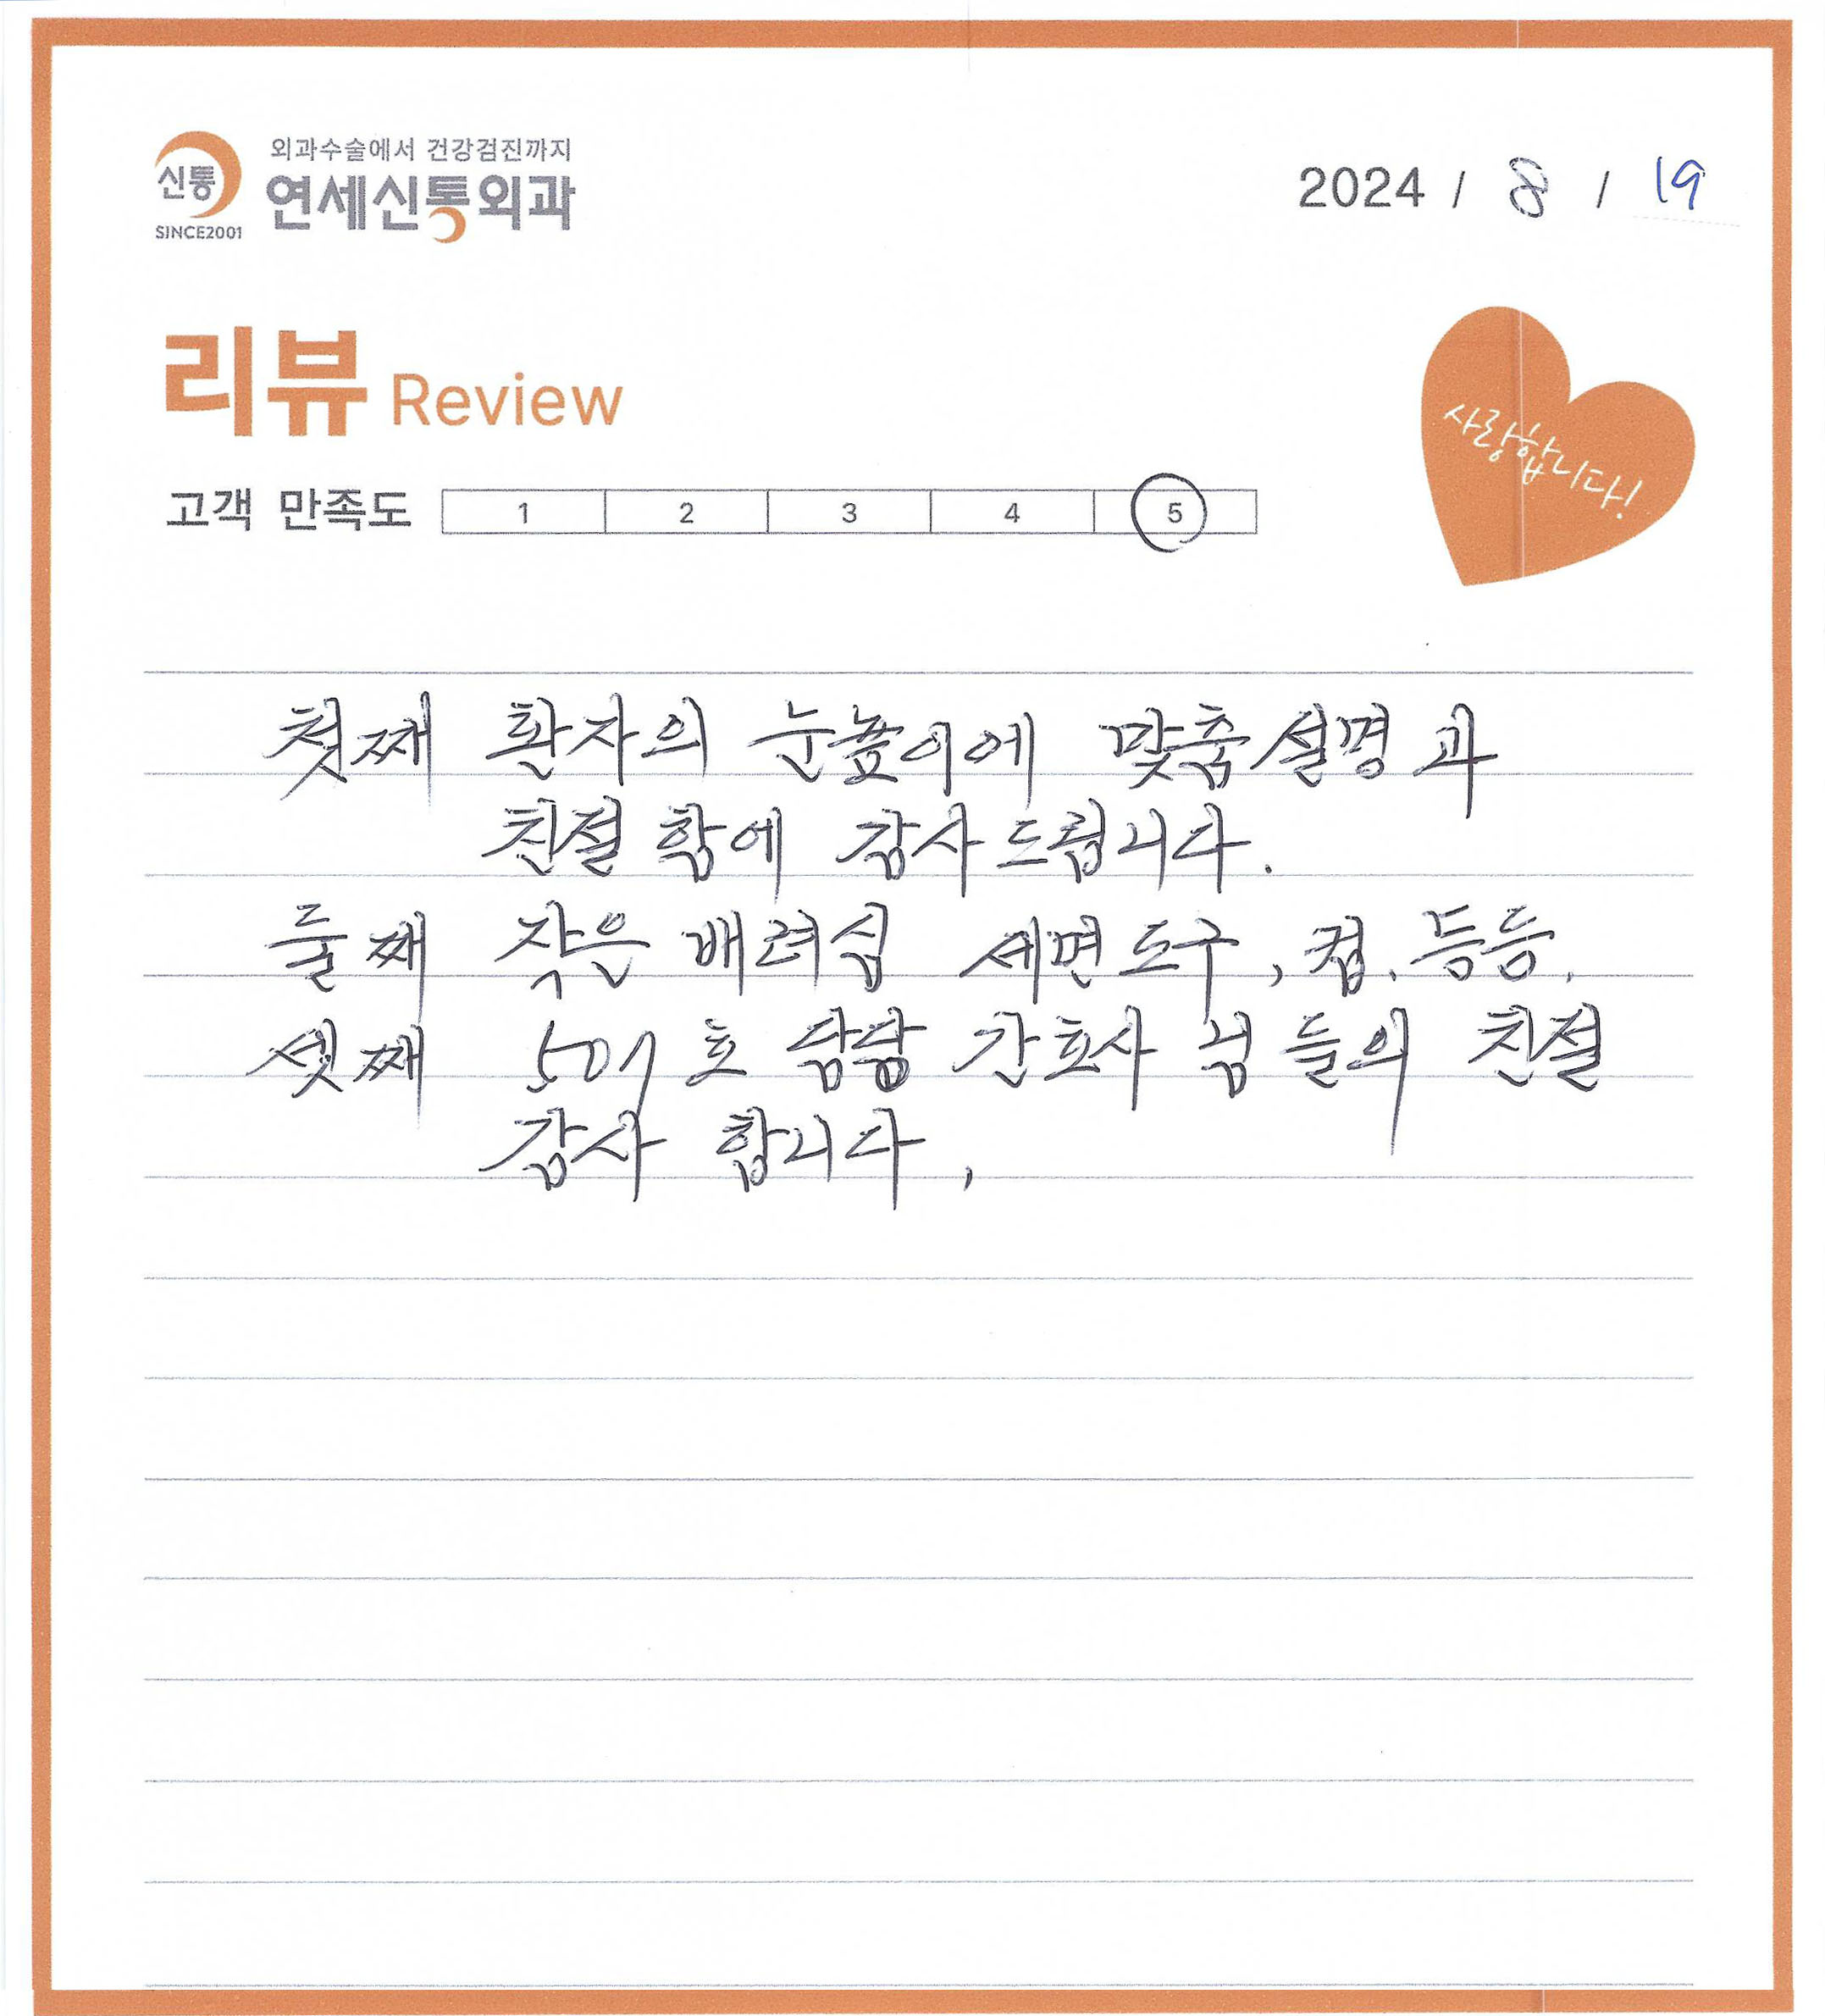 외과수술에서 건강검진까지
신통 연세신통외과
SINCE2001
2024 / 8 / 19
리뷰 Review
사랑합니다!
고객 만족도 1 2 3 4 5
첫째 환자의 눈높이에 맞춤설명과
친절 함에 감사드립니다.
둘째 작은 배려심 세면도구, 컵, 등등.
셋째 507호 담당 간호사 님들의 친절
감사 합니다,